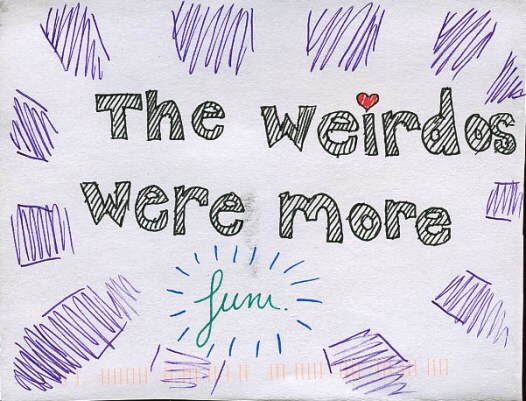 The weirdos
were more
fun.